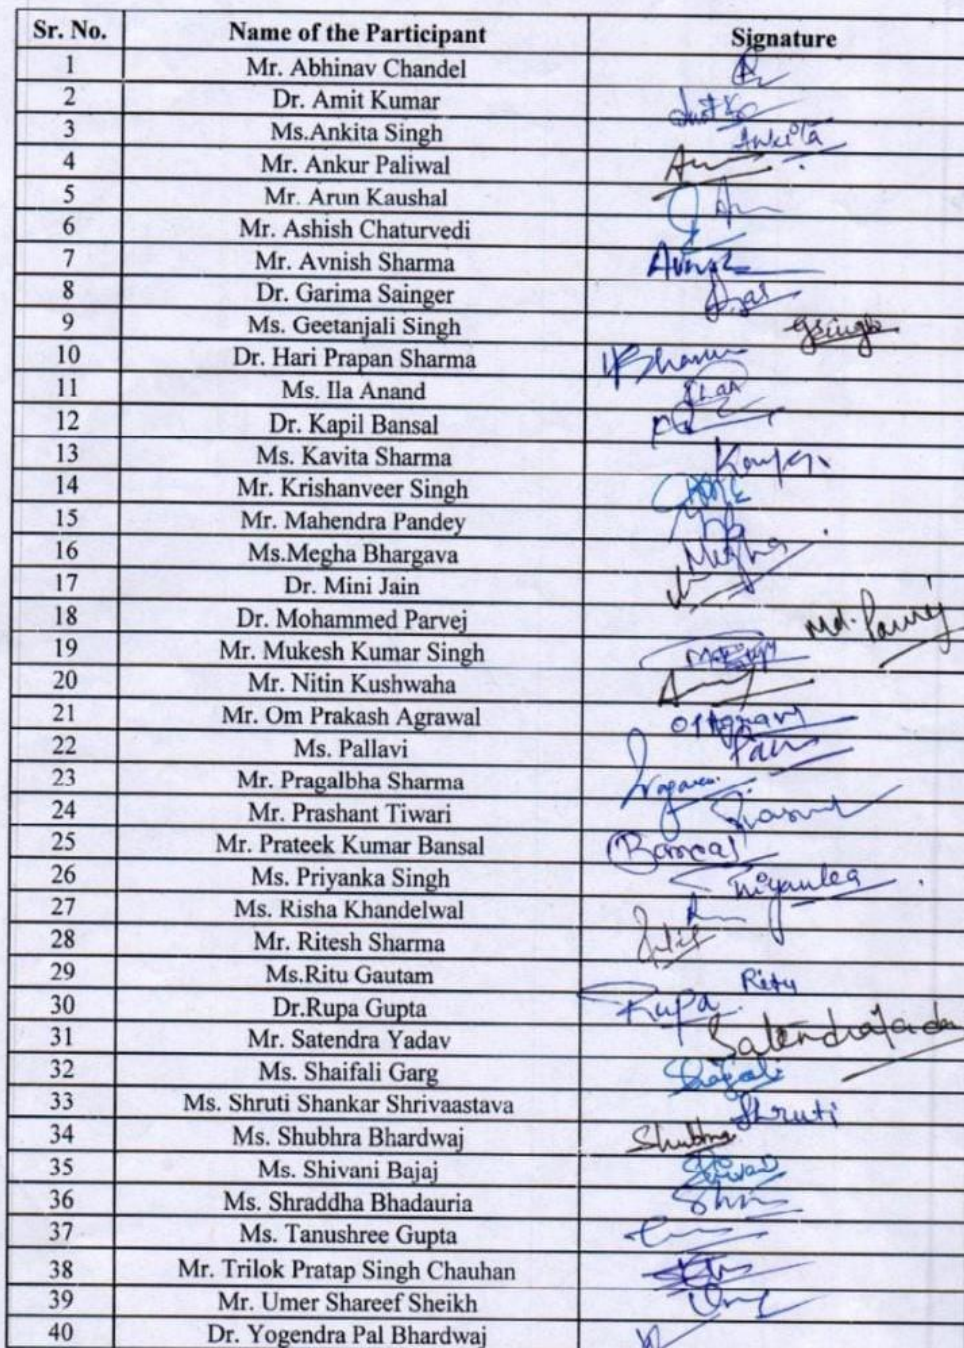 Sr. No. Name of the Participant Signature
1 Mr. Abhinav Chandel
2 Dr. Amit Kumar
3 Ms.Ankita Singh Ankita
4 Mr. Ankur Paliwal
5 Mr. Arun Kaushal
6 Mr. Ashish Chaturvedi
7 Mr. Avnish Sharma
8 Dr. Garima Sainger
9 Ms. Geetanjali Singh gsingh
10 Dr. Hari Prapan Sharma
11 Ms. Ila Anand
12 Dr. Kapil Bansal
13 Ms. Kavita Sharma
14 Mr. Krishanveer Singh
15 Mr. Mahendra Pandey
16 Ms.Megha Bhargava Megha
17 Dr. Mini Jain
18 Dr. Mohammed Parvej Md. Parvej
19 Mr. Mukesh Kumar Singh
20 Mr. Nitin Kushwaha
21 Mr. Om Prakash Agrawal
22 Ms. Pallavi
23 Mr. Pragalbha Sharma
24 Mr. Prashant Tiwari
25 Mr. Prateek Kumar Bansal Bansal
26 Ms. Priyanka Singh Priyanka
27 Ms. Risha Khandelwal
28 Mr. Ritesh Sharma
29 Ms.Ritu Gautam Ritu
30 Dr.Rupa Gupta Rupa
31 Mr. Satendra Yadav
32 Ms. Shaifali Garg
33 Ms. Shruti Shankar Shrivaastava Shruti
34 Ms. Shubhra Bhardwaj Shubhra
35 Ms. Shivani Bajaj
36 Ms. Shraddha Bhadauria
37 Ms. Tanushree Gupta
38 Mr. Trilok Pratap Singh Chauhan
39 Mr. Umer Shareef Sheikh
40 Dr. Yogendra Pal Bhardwaj